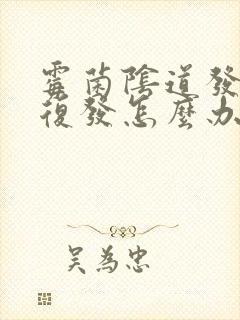 霉菌陰道發
復發怎麼办
吳為忠